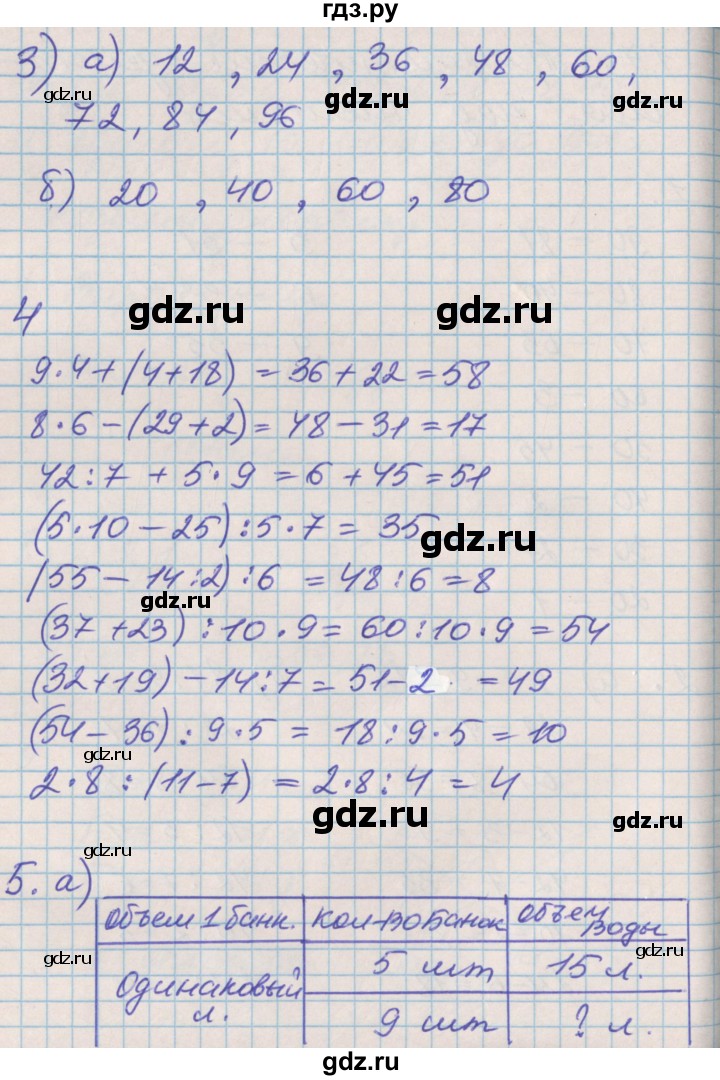 гдз.ру
3) а) 12 , 24 , 36 , 48 , 60,
gdz.ru
gdz.ru
gdz.ru
72, 84, 96
б) 20 , 40 , 60 , 80
4
gdz.ru
gdz.ru
9·4+(4+18) = 36+22=58
8·6-(29+2)= 48-31=17
42:7 + 5·9 = 6+45=51
(5·10-25):5·7= 35
gdz.ru
(55-14:2):6 = 48:6=8
gdz.ru
(37+23):10·9= 60:10·9=54
(32+19)-14:7= 51-2 =49
(54-36):9·5 = 18:9·5=10
gdz.ru
2·8:(11-7) = 2·8:4=4
gdz.ru
gdz.ru
gdz.ru
5. а)
объем 1 банк. кол-во банок объем воды
gdz.ru
gdz.ru
5 шт 15 л.
одинаковый л.
9 шт ? л.
gdz.ru
gdz.ru
gdz.ru
gdz.ru